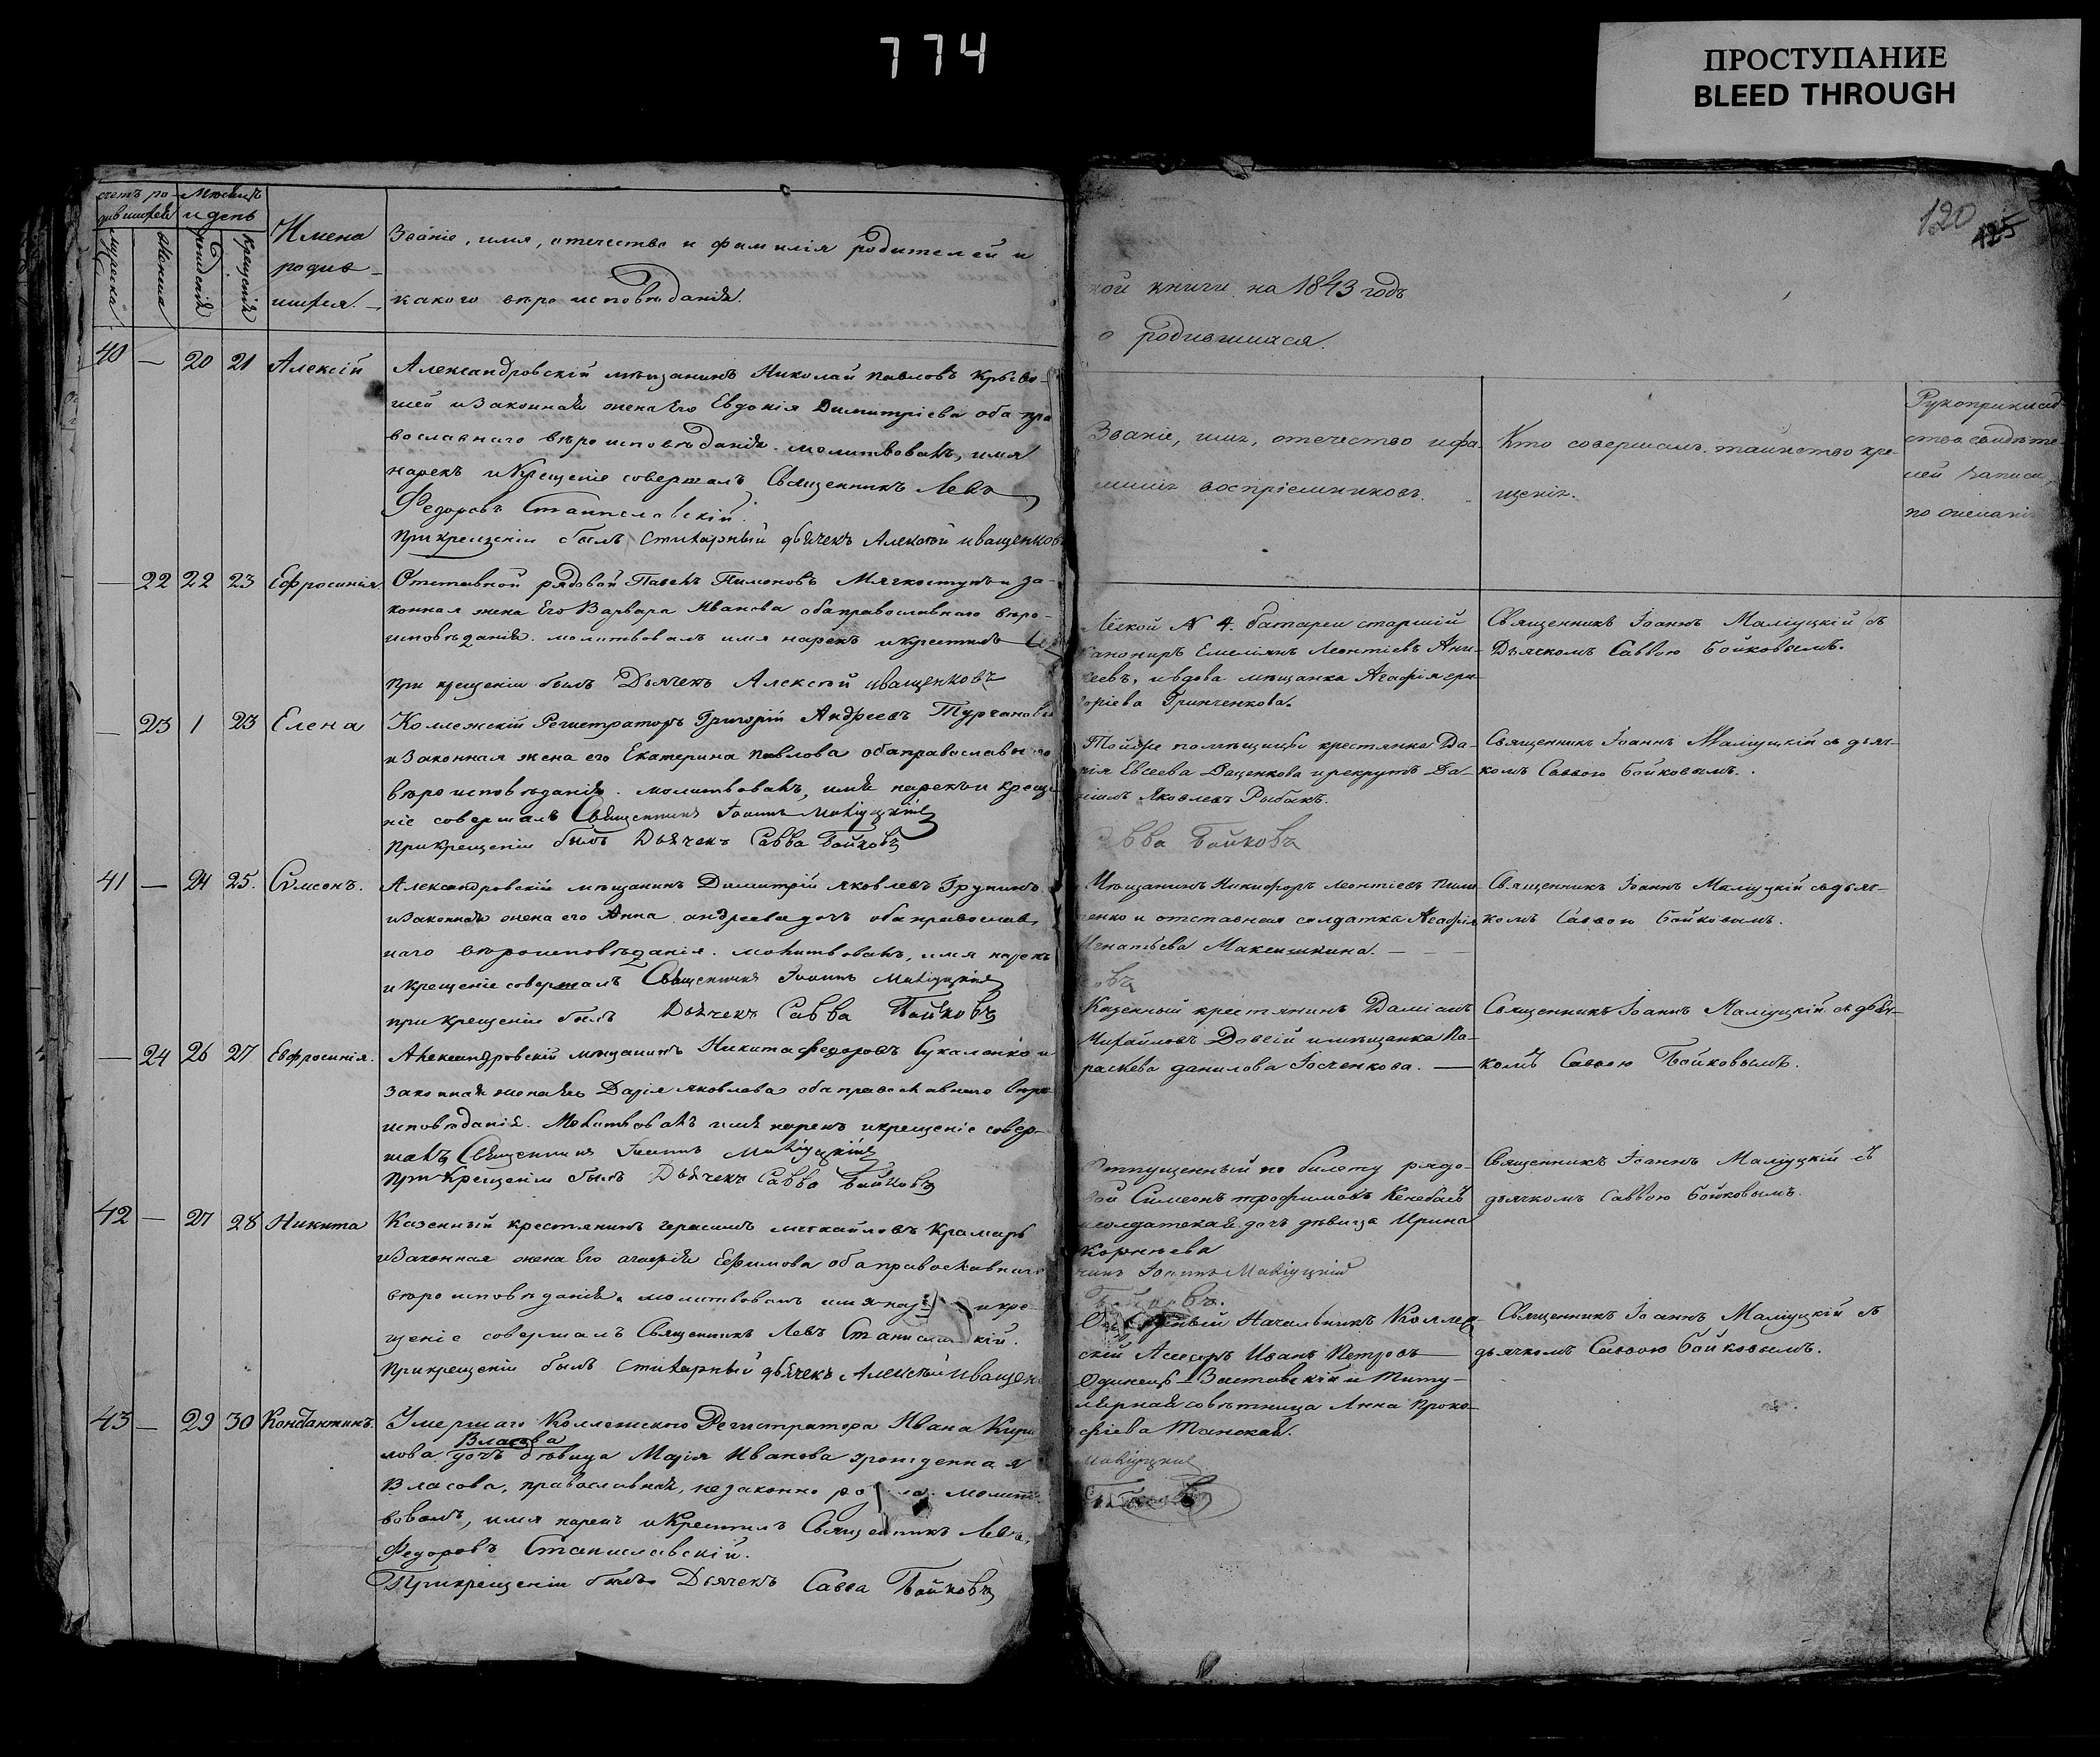 774
ПРОСТУПАНИЕ
BLEED THROUGH
счетъ ро-
дившихся
Мѣсяцъ
и день
мужеска
женска
рожденія
крещенія
Имена
родив-
шихся.
Званіе, имя, отечество и фамилія родителей и
какого вѣроисповѣданія.
40 — 20 21 Алексій
Александровскій мѣщанинъ Николай Павловъ
шей и законная жена его Евдокія Димитріева оба пра
вославнаго вѣроисповѣданія. молитвовалъ, имя
нарекъ и крещеніе совершалъ Священникъ Левъ
Федоровъ Станиславскій.
При крещеніи былъ Стихарный дьячекъ Алексѣй Иващенковъ
— 22 22 23 Ефросинія
Отставной рядовой Павелъ Пимоновъ и за-
конная жена Его Варвара Иванова оба православнаго вѣро-
исповѣданія. молитвовалъ имя нарекъ и крестилъ
При крещеніи былъ Дьячекъ Алексѣй Иващенковъ
— 23 1 23 Елена
Коллежскій Регистраторъ Григорій Андреевъ
и законная жена его Екатерина Павлова оба православнаго
вѣроисповѣданія. молитвовалъ, имя нарекъ и креще
ніе совершалъ Священникъ Іоаннъ Маліуцкій
При крещеніи былъ Дьячекъ Савва Бойковъ
41 — 24 25. Сѵмеонъ.
Александровскій мѣщанинъ Димитрій Яковлевъ
и законная жена его Анна Андреева дочь оба православ-
наго вѣроисповѣданія. молитвовалъ, имя нарекъ
и крещеніе совершалъ Священникъ Іоаннъ Маліуцкій
при крещеніи былъ Дьячекъ Савва Бойковъ
— 24 26 27 Евфросинія.
Александровскій мѣщанинъ Никита Федоровъ и
законная жена его Дарія Яковлева оба православнаго вѣро
исповѣданія. Молитвовалъ имя нарекъ и крещеніе совер-
шалъ Священникъ Іоаннъ Маліуцкій
При крещеніи былъ Дьячекъ Савва Бойковъ
42 — 27 28 Никита
Казенный крестянинъ Герасимъ Михайловъ Крамаръ
и законная жена Его Агафія Ефимова оба православнаго
вѣроисповѣданія. молитвовалъ имя и кре-
щеніе совершалъ Священникъ Левъ
При крещеніи былъ Стихарный дьячекъ Алексѣй Иващен
43 — 29 30 Константинъ.
Умершаго Коллежского Регистратора Ивана Кири
лова Власова дочь дѣвица Марія Иванова урожденная
Власова, православная, незаконно молит
вовалъ, имя нарекъ и крестилъ Священникъ Левъ
Федоровъ Станиславскій.
При крещеніи былъ Дьячекъ Савва Бойковъ
120
125
кой книги на 1843 годъ
о родившихся.
Званіе, имя, отечество и фа-
миліи воспріемниковъ.
Кто совершалъ таинство кре-
щенія.
Рукоприклад-
ство свидѣте-
лей записи
по желанію
Легкой N 4. батареи старшій
канониръ Емеліянъ Леонтіевъ Ани-
кеевъ, и вдова мѣщанка Агафія Гри-
горіева Гринченкова.
Священникъ Іоаннъ Маліуцкій съ
Дьячкомъ Саввою Бойковымъ.
помѣщицы крестянка Да-
рія Евсеева Даценкова и рекрутъ Да-
ніилъ Яковлевъ Рыбакъ.
Священникъ Іоаннъ Маліуцкій съ дьяч-
комъ Саввою Бойковымъ.
Савва Бойковъ
Мѣщанинъ Никифоръ Леонтіевъ
ченко и отставная солдатка Агафія
Игнатьева Максишкина. —
Священникъ Іоаннъ Маліуцкій съ дьяч-
комъ Саввою Бойковымъ.
овъ
Казенный крестянинъ Даміанъ
Михайловъ и мѣщанка Па-
раскева Данилова —
Священникъ Іоаннъ Маліуцкій съ дьяч-
комъ Саввою Бойковымъ.
Отпущенный по билету рядо-
вой Симеонъ Трофимовъ
и солдатская дочь дѣвица Ирина
Корнѣева
Священникъ Іоаннъ Маліуцкій съ
дьячкомъ Саввою Бойковымъ.
никъ Іоаннъ Маліуцкій
Бойковъ.
Начальникъ Коллеж-
скій Асесоръ Иванъ Петровъ
и Титу-
лярная совѣтница Анна Проко-
фіева Танская.
Священникъ Іоаннъ Маліуцкій съ
дьячкомъ Саввою Бойковымъ.
Маліуцкій